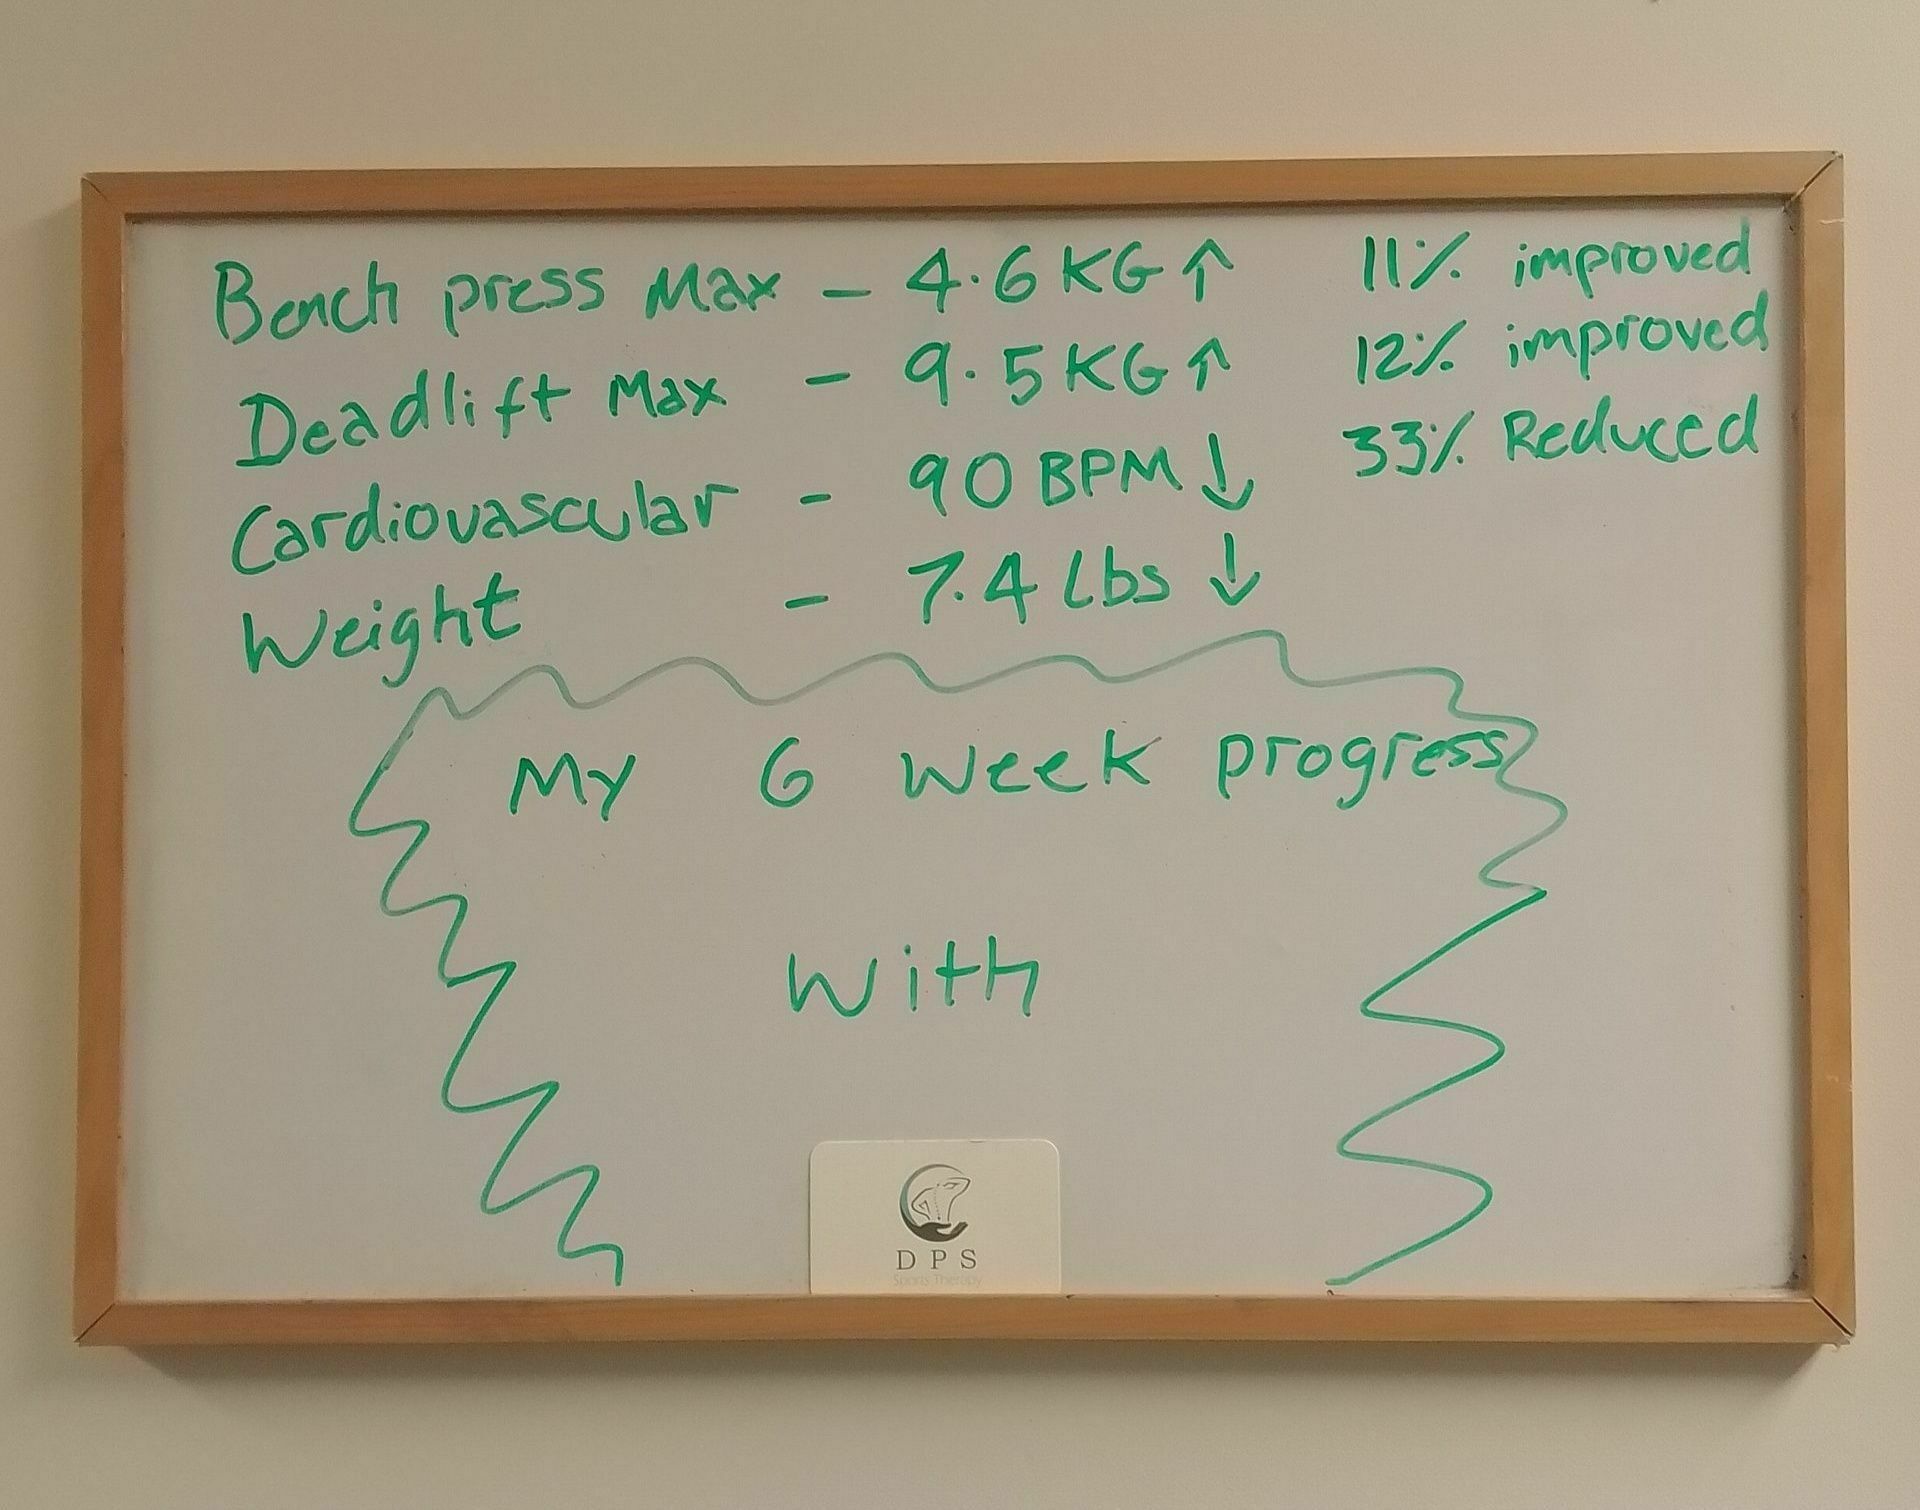 Bench press Max – 4.6 KG ↑ 11% improved
Deadlift Max – 9.5 KG ↑ 12% improved
Cardiovascular – 90 BPM ↓ 33% Reduced
Weight – 7.4 Lbs ↓
My 6 Week progress
With
DPS
Sports Therapy